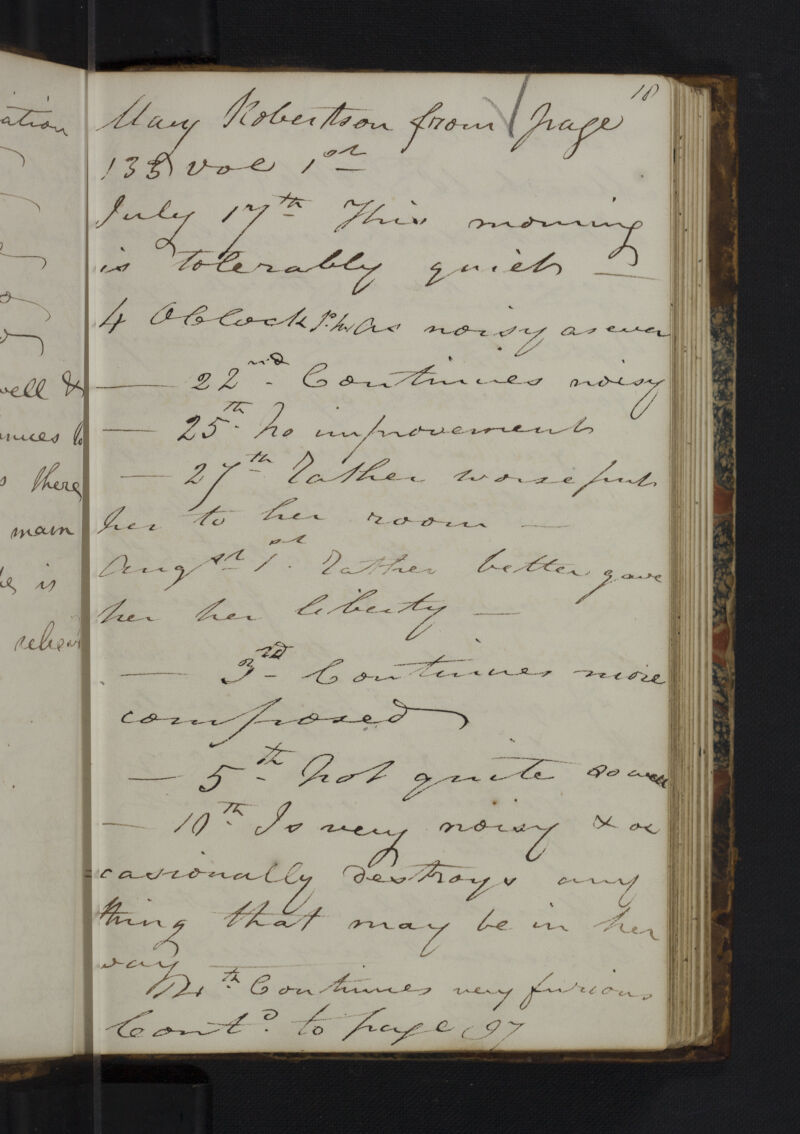 18
Mary Robertson from page
133 vol 1st
July 17th This morning
is tolerably quiet —
4 OClock P.M. As noisy as ever
— 22nd. Continues noisy
— 25th. No improvement
— 27th Rather worse put
her to her room —
Augst 1st. Rather better gave
her her liberty —
— 3rd Continues more
composed
— 5th Not quite so well
— 10th. Is very noisy & oc
=casionally destroys any
thing that may be in her
way —
14th. Continues very furious
Contd. to page 97
ation
well &
inues to
there
main
he is